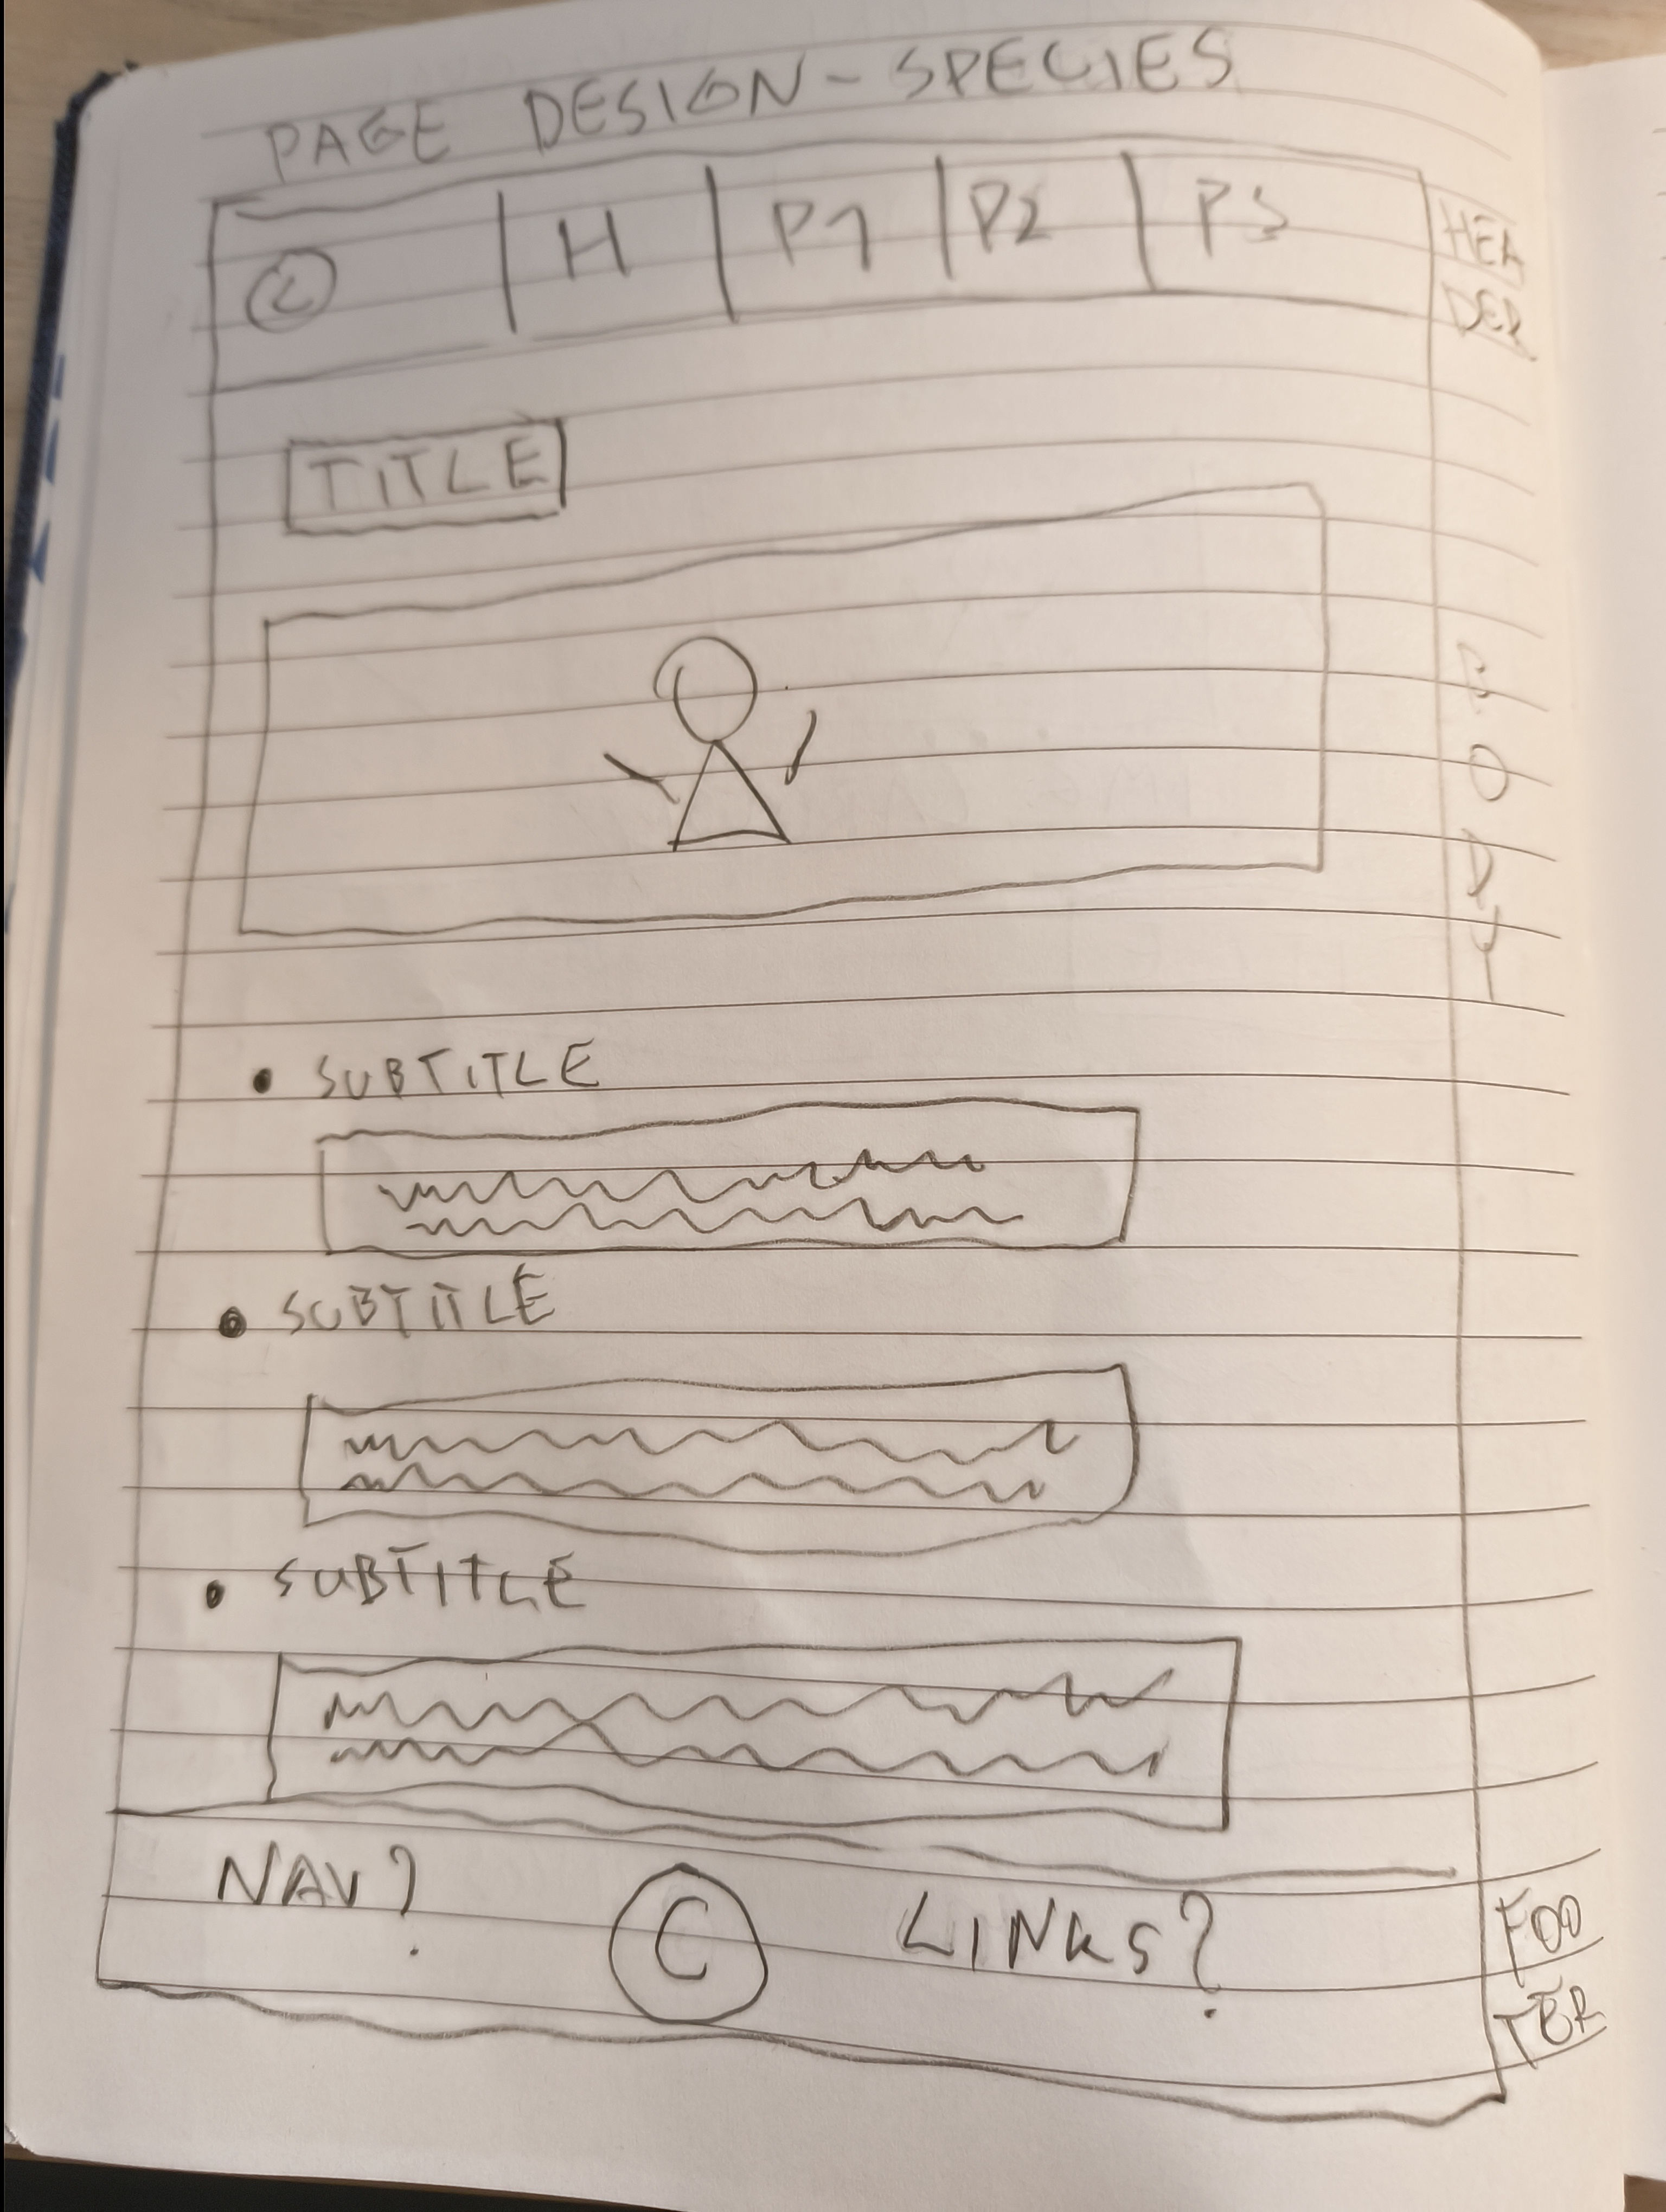 PAGE DESIGN - SPECIES
H P1 P2 P3
HEA
DER
TITLE
BODY
• SUBTITLE
• SUBTITLE
• SUBTITLE
NAV? C LINKS?
FOO
TER